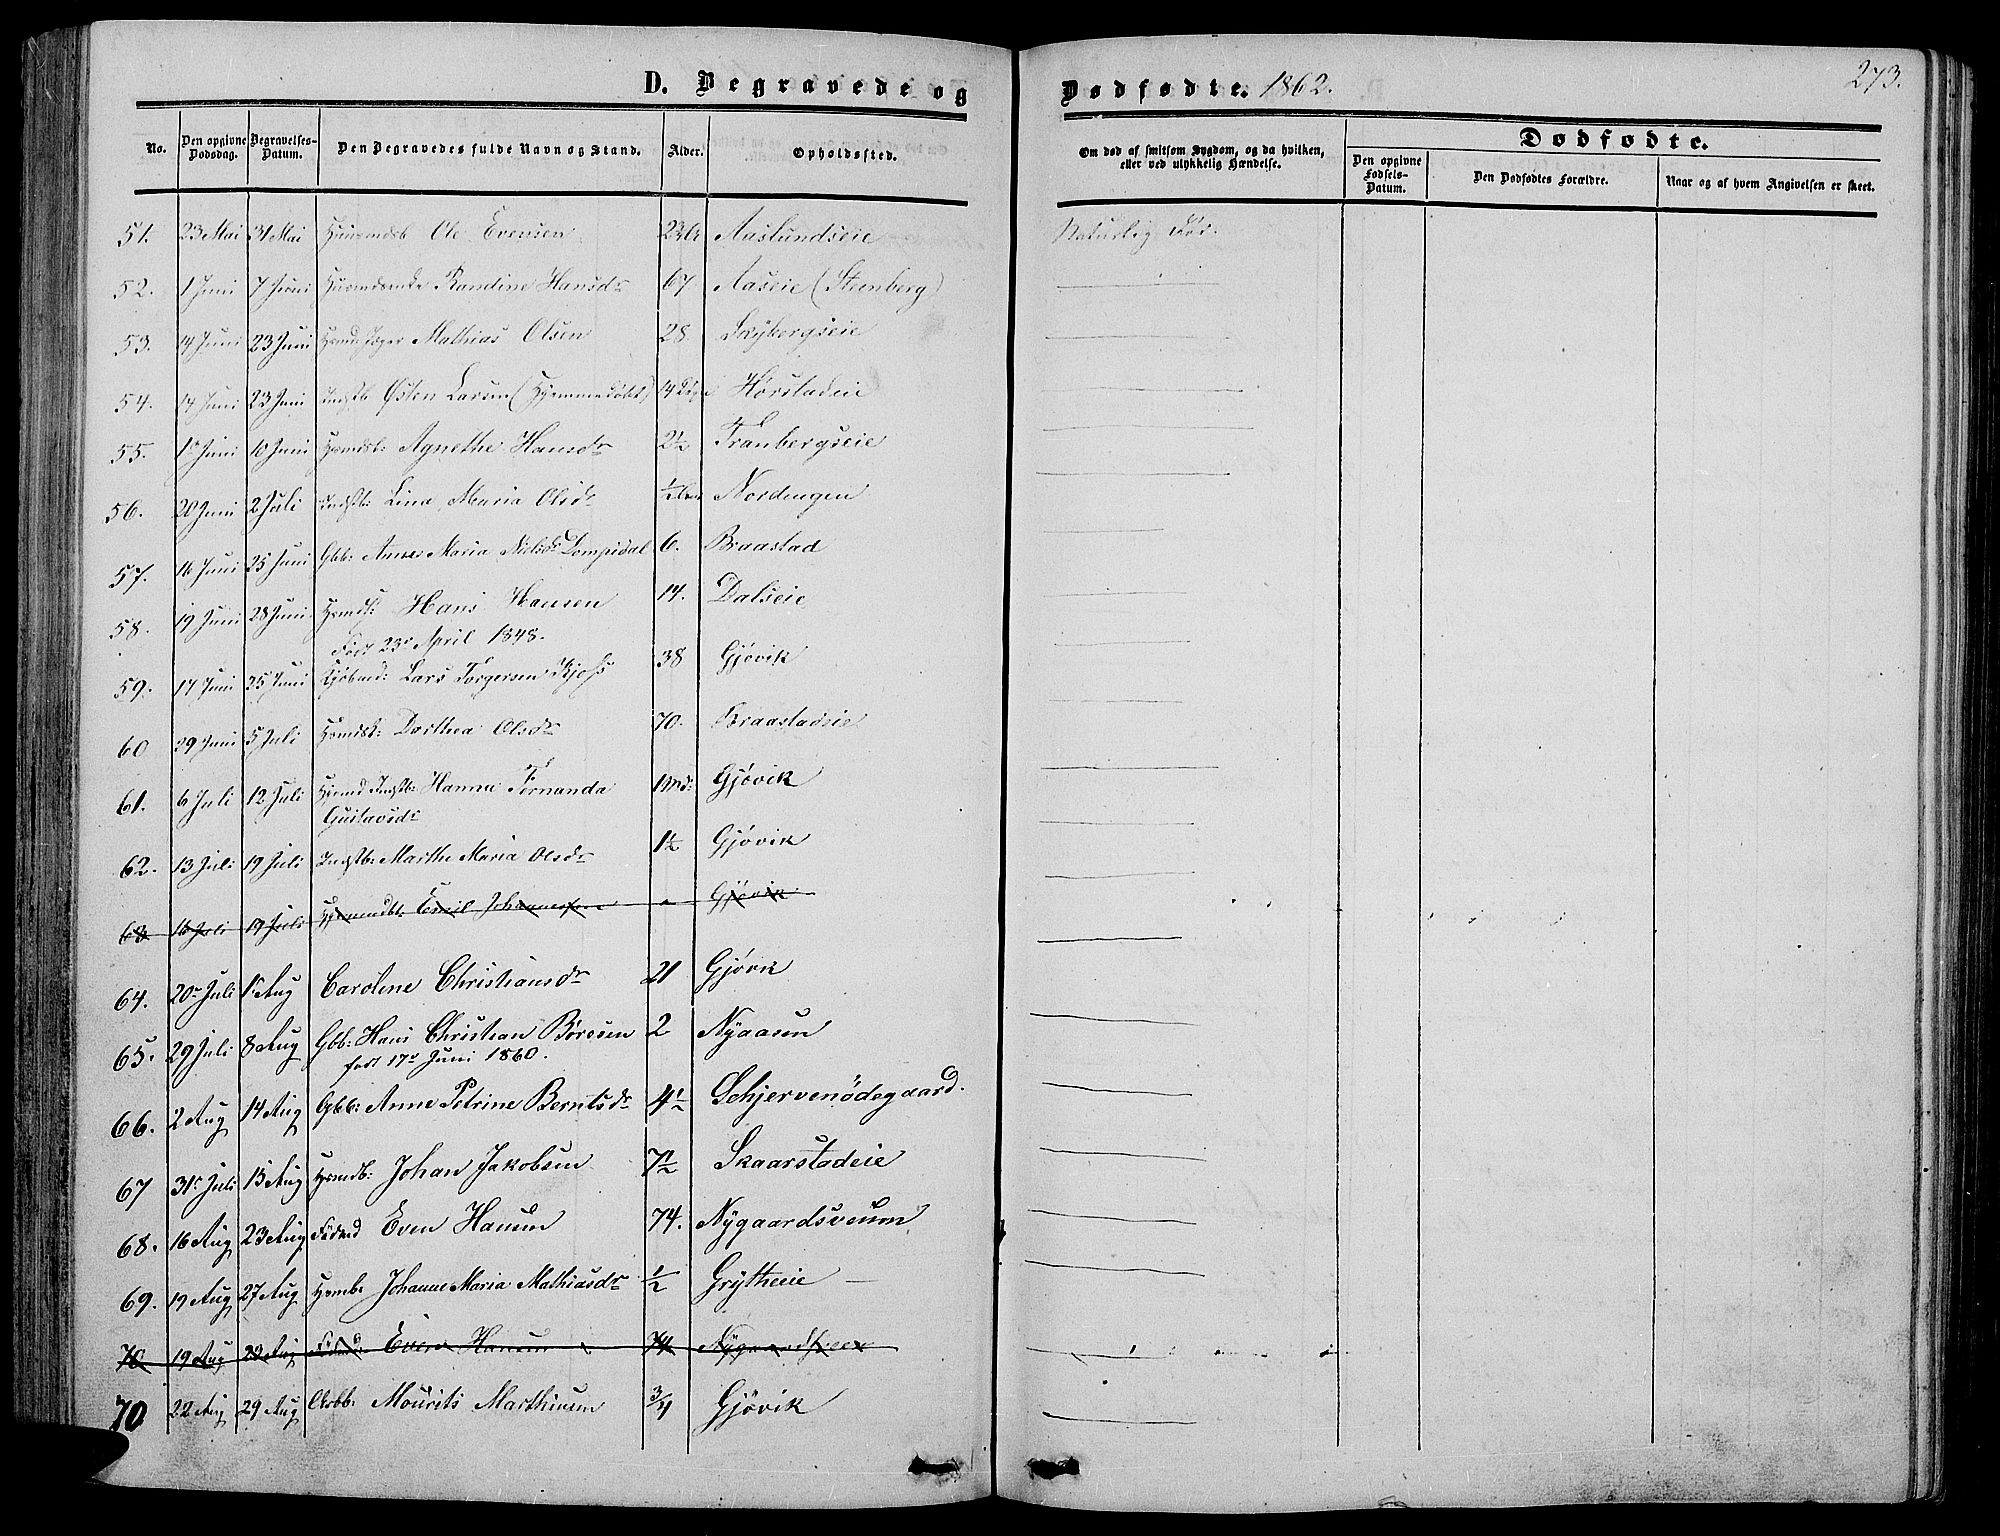 D. Begravede og Dødfødte. 1862. 273.
No. Den opgivne Dødsdag. Begravelses-Datum. Den Begravedes fulde Navn og Stand. Alder. Opholdssted. Om død af smitsom Sygdom, og da hvilken, eller ved ulykkelig Hændelse. Dødfødte.
Den opgivne Fødsels-Datum. Den Dødfødtes Forældre. Naar og af hvem Angivelsen er skeet.
51. 23 Mai 31 Mai Ole Evensen Aaslundseie Naturlig
52. 1 Juni 7 Juni Randine Hansdr 67 Aaseie (Steenberg)
53. 14 Juni 23 Juni Mathias Olsen 28 Skybergseie
54. 14 Juni 23 Juni Indstb Østen Larsen (Hjemmedøbt) 14 Dage Hørstadeie
55. 1r Juni 10 Juni Hsmdsb: Agnethe Hansdr 2½ Tranbergseie
56. 20 Juni 2 Juli Indstb: Lina Maria Olsdr Nordengen
57. 16 Juni 25 Juni Gbb: Annes Maria Nielsdr 6. Braastad
58. 19 Juni 28 Juni Hsmdb: Hans Hansen 14. Dalseie
Født 23r April 1848.
59. 17 Juni 35 Juni Lars Torgersen 38 Gjøvik
60 29 Juni 5 Juli Hsmdsk: Dorthea Olsdr 70. Braastadeie
61. 6 Juli 12 Juli Indstb: Hanna Fernanda 1 Md: Gjøvik
Gustavsdr
62. 13 Juli 19 Juli Indstb: Marthe Maria Olsdr 1½ Gjøvik
63 16 Juli 19 Juli Emil Johannesen Gjøvik
64. 20r Juli 1r Aug Caroline Christiansdr 21 Gjøvik
65. 29 Juli 8 Aug Gbb: Hans Christian Børesen 2 Nyaasen
født 17r Juni 1860.
66. 2 Aug 14 Aug Gbb: Anne Petrine Berntsdr 4½ Schjervenødegaard.
67 31r Juli 15 Aug Hsmdb: Johan Jakobsen 7½ Skaarstadeie
68. 16 Aug 23 Aug Even Hansen 74. Nygaardsveum
69. 19 Aug 27 Aug Hsmb: Johanne Maria Mathiasdr ½ Grytheeie
70 19 Aug 29 Aug Even Hansen 74
70 22 Aug 29 Aug Mourits Marthinsen 3/4 Gjøvik